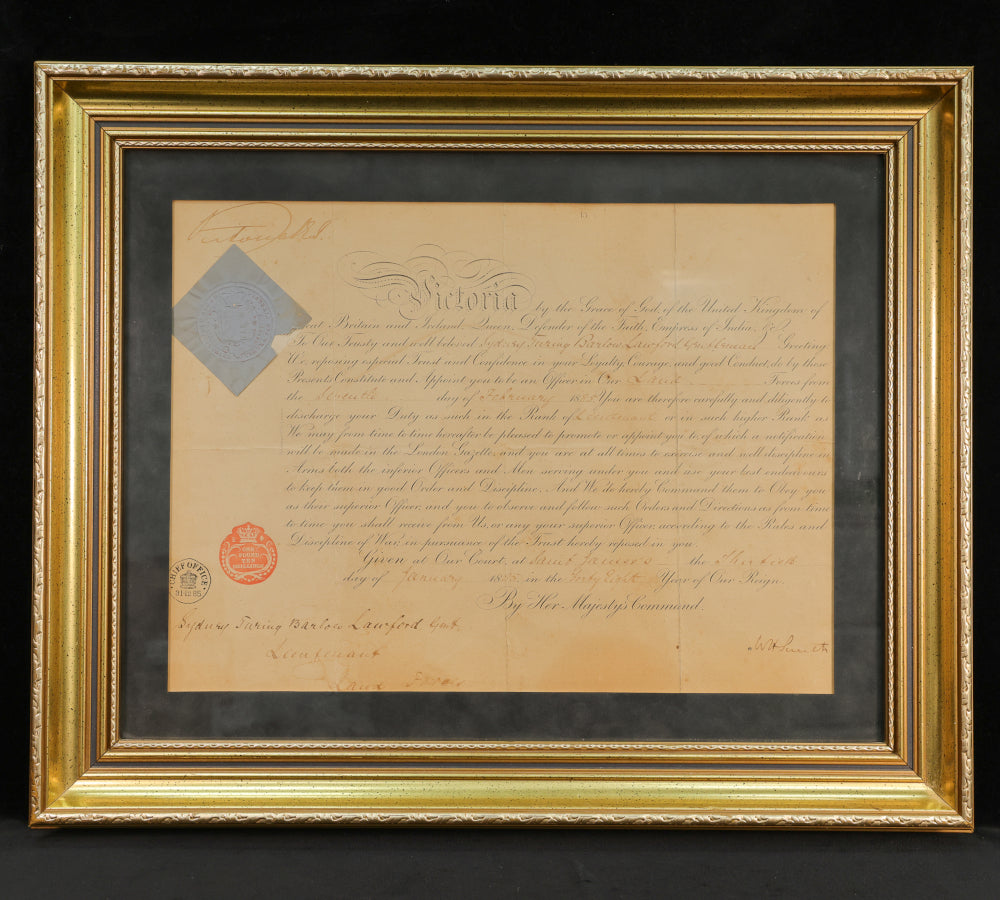 Victoria R.I.
Victoria by the Grace of God, of the United Kingdom of
Great Britain and Ireland, Queen, Defender of the Faith, Empress of India, &c.
To Our Trusty and well beloved Sydney Turing Barlow Lawford Gentleman Greeting
We, reposing especial Trust and Confidence in your Loyalty, Courage, and good Conduct, do by these
Presents Constitute and Appoint you to be an Officer in Our Land Forces from
the Seventh day of February 1885 You are therefore carefully and diligently to
discharge your Duty as such in the Rank of Lieutenant or in such higher Rank as
We may from time to time hereafter be pleased to promote or appoint you to of which a notification
will be made in the London Gazette, and you are at all times to exercise and well discipline in
Arms both the inferior Officers and Men serving under you and use your best endeavours
to keep them in good Order and Discipline. And We do hereby Command them to Obey you
as their superior Officer, and you to observe and follow such Orders and Directions as from time
to time you shall receive from Us, or any your superior Officer, according to the Rules and
Discipline of War, in pursuance of the Trust hereby reposed in you.
Given at Our Court, at Saint James's the Thirtieth
day of January 1885 in the Forty Eighth Year of Our Reign
By Her Majesty's Command.
ONE
POUND
TEN
SHILLINGS
CHIEF OFFICE
31·12·85
Sydney Turing Barlow Lawford Gent
Lieutenant
Land Forces
WH Smith